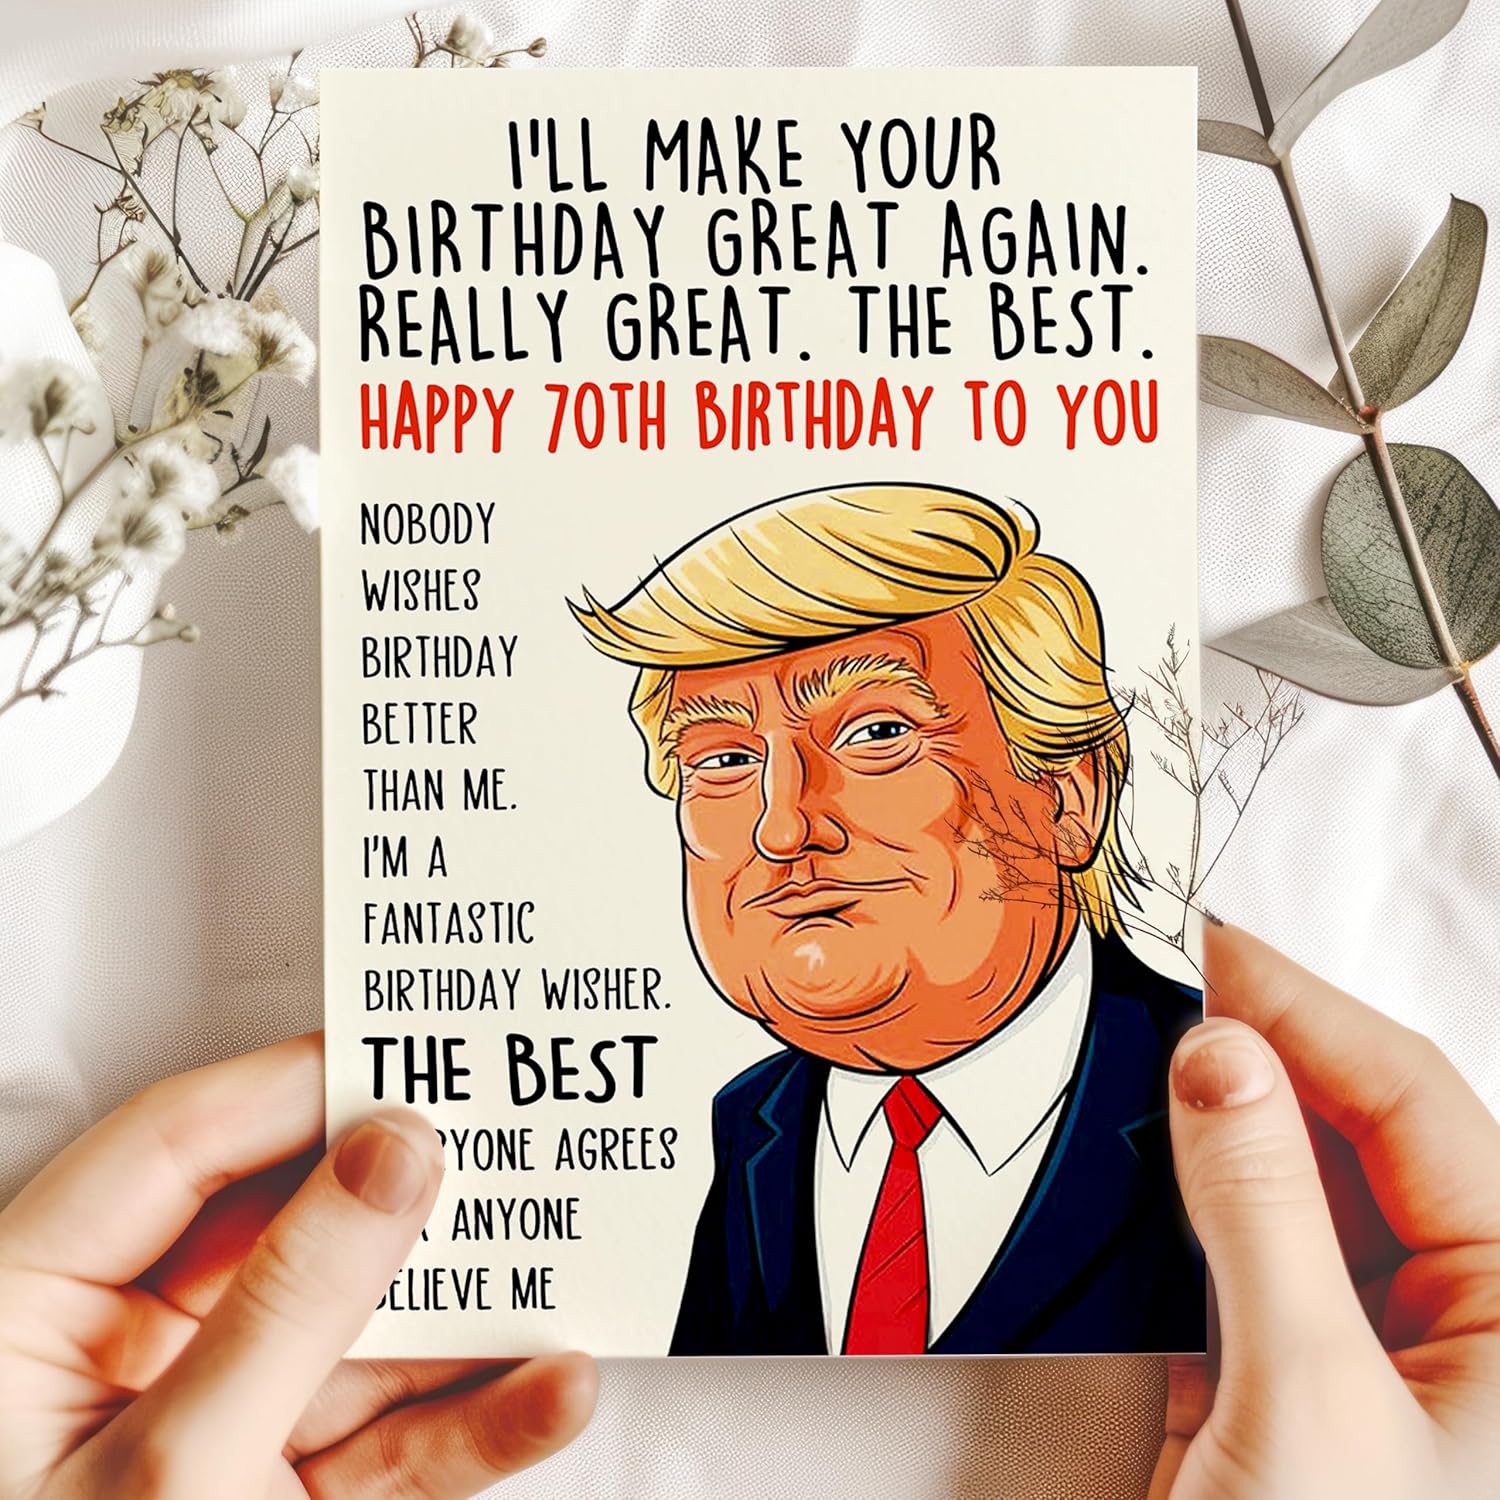 I'LL MAKE YOUR
BIRTHDAY GREAT AGAIN.
REALLY GREAT. THE BEST.
HAPPY 70TH BIRTHDAY TO YOU
NOBODY
WISHES
BIRTHDAY
BETTER
THAN ME.
I'M A
FANTASTIC
BIRTHDAY WISHER.
THE BEST
AGREES
ANYONE
ME